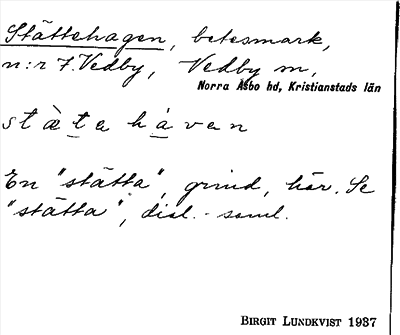 Stättehagen, betesmark,
n:r 7. Vedby, Vedby sn,
Norra Åsbo hd, Kristianstads län
stätehàvan
En "stätta", grind, här. Se
"stätta"; dial.- saml.
BIRGIT LUNDKVIST 1937